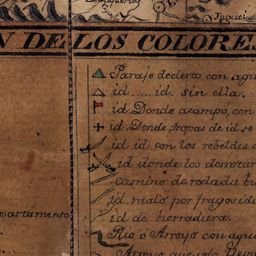 Jaguei
N DE LOS COLORES
Paraje decierto con agu
id.....id. sin ella.
id. Donde acampo, con
id. Donde tropas de id. se
id. id. con los rebeldes
id donde los demotar
camino de rodada
id. malo por fragosida
id. de herradura.
partamento
Rio o Arroyo con agu
Arroyo que